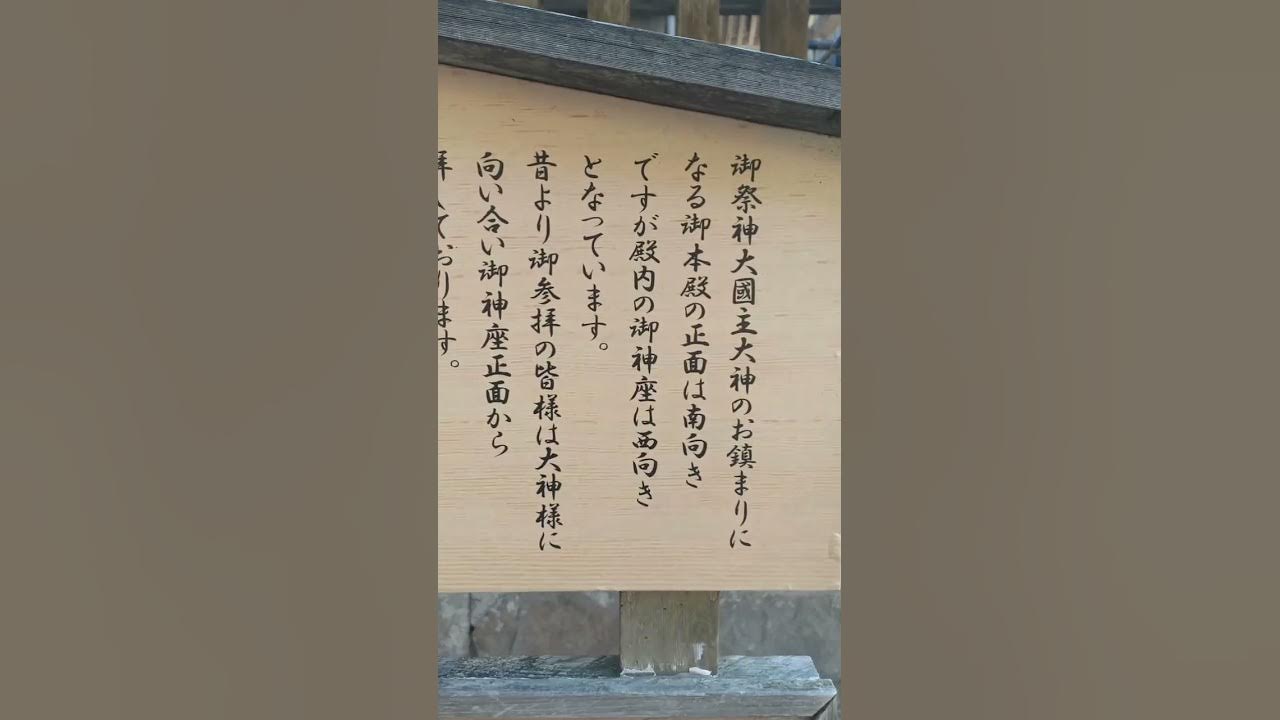 御祭神大國主大神のお鎮まりに
なる御本殿の正面は南向き
ですが殿内の御神座は西向き
となっています。
昔より御参拝の皆様は大神様に
向い合い御神座正面から
拝んでおります。